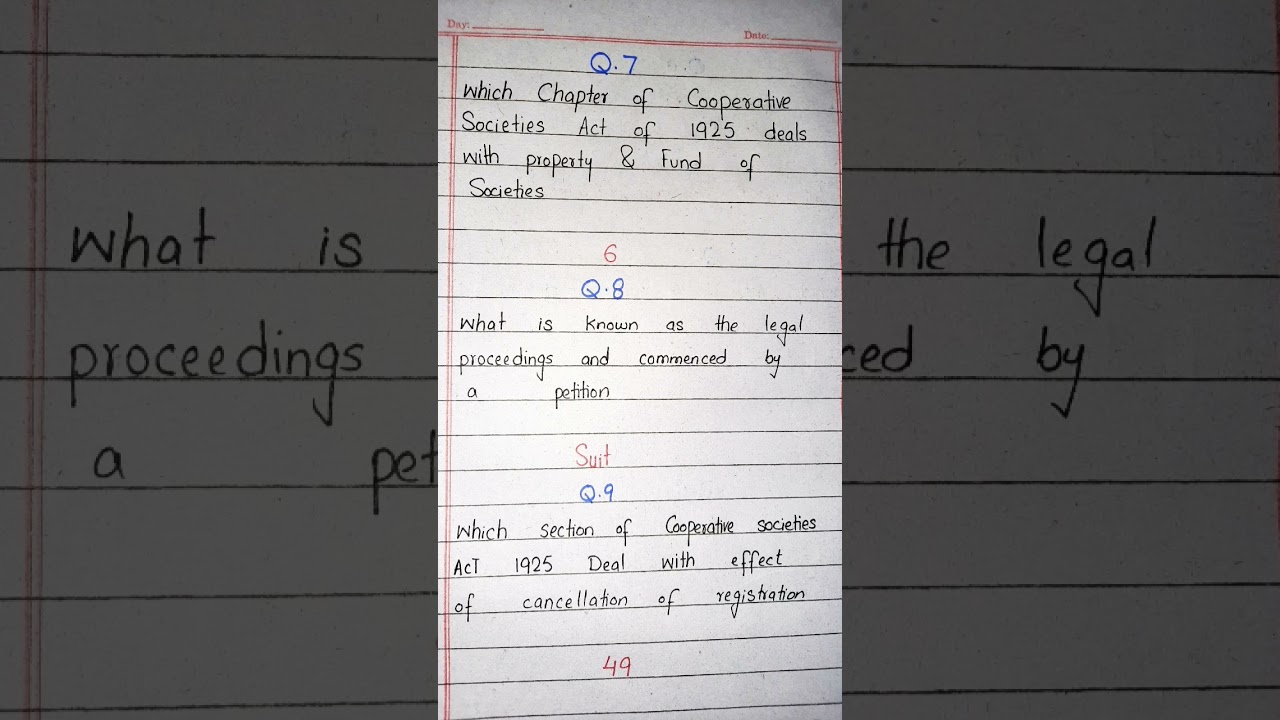 Day:
Date:
Q.7
which Chapter of Cooperative
Societies Act of 1925 deals
with property & Fund of
Societies
6
Q.8
what is known as the legal
proceedings and commenced by
a petition
Suit
Q.9
which section of Cooperative societies
ACT 1925 Deal with effect
of cancellation of registration
49
what is
proceedings
a pet
the legal
ced by